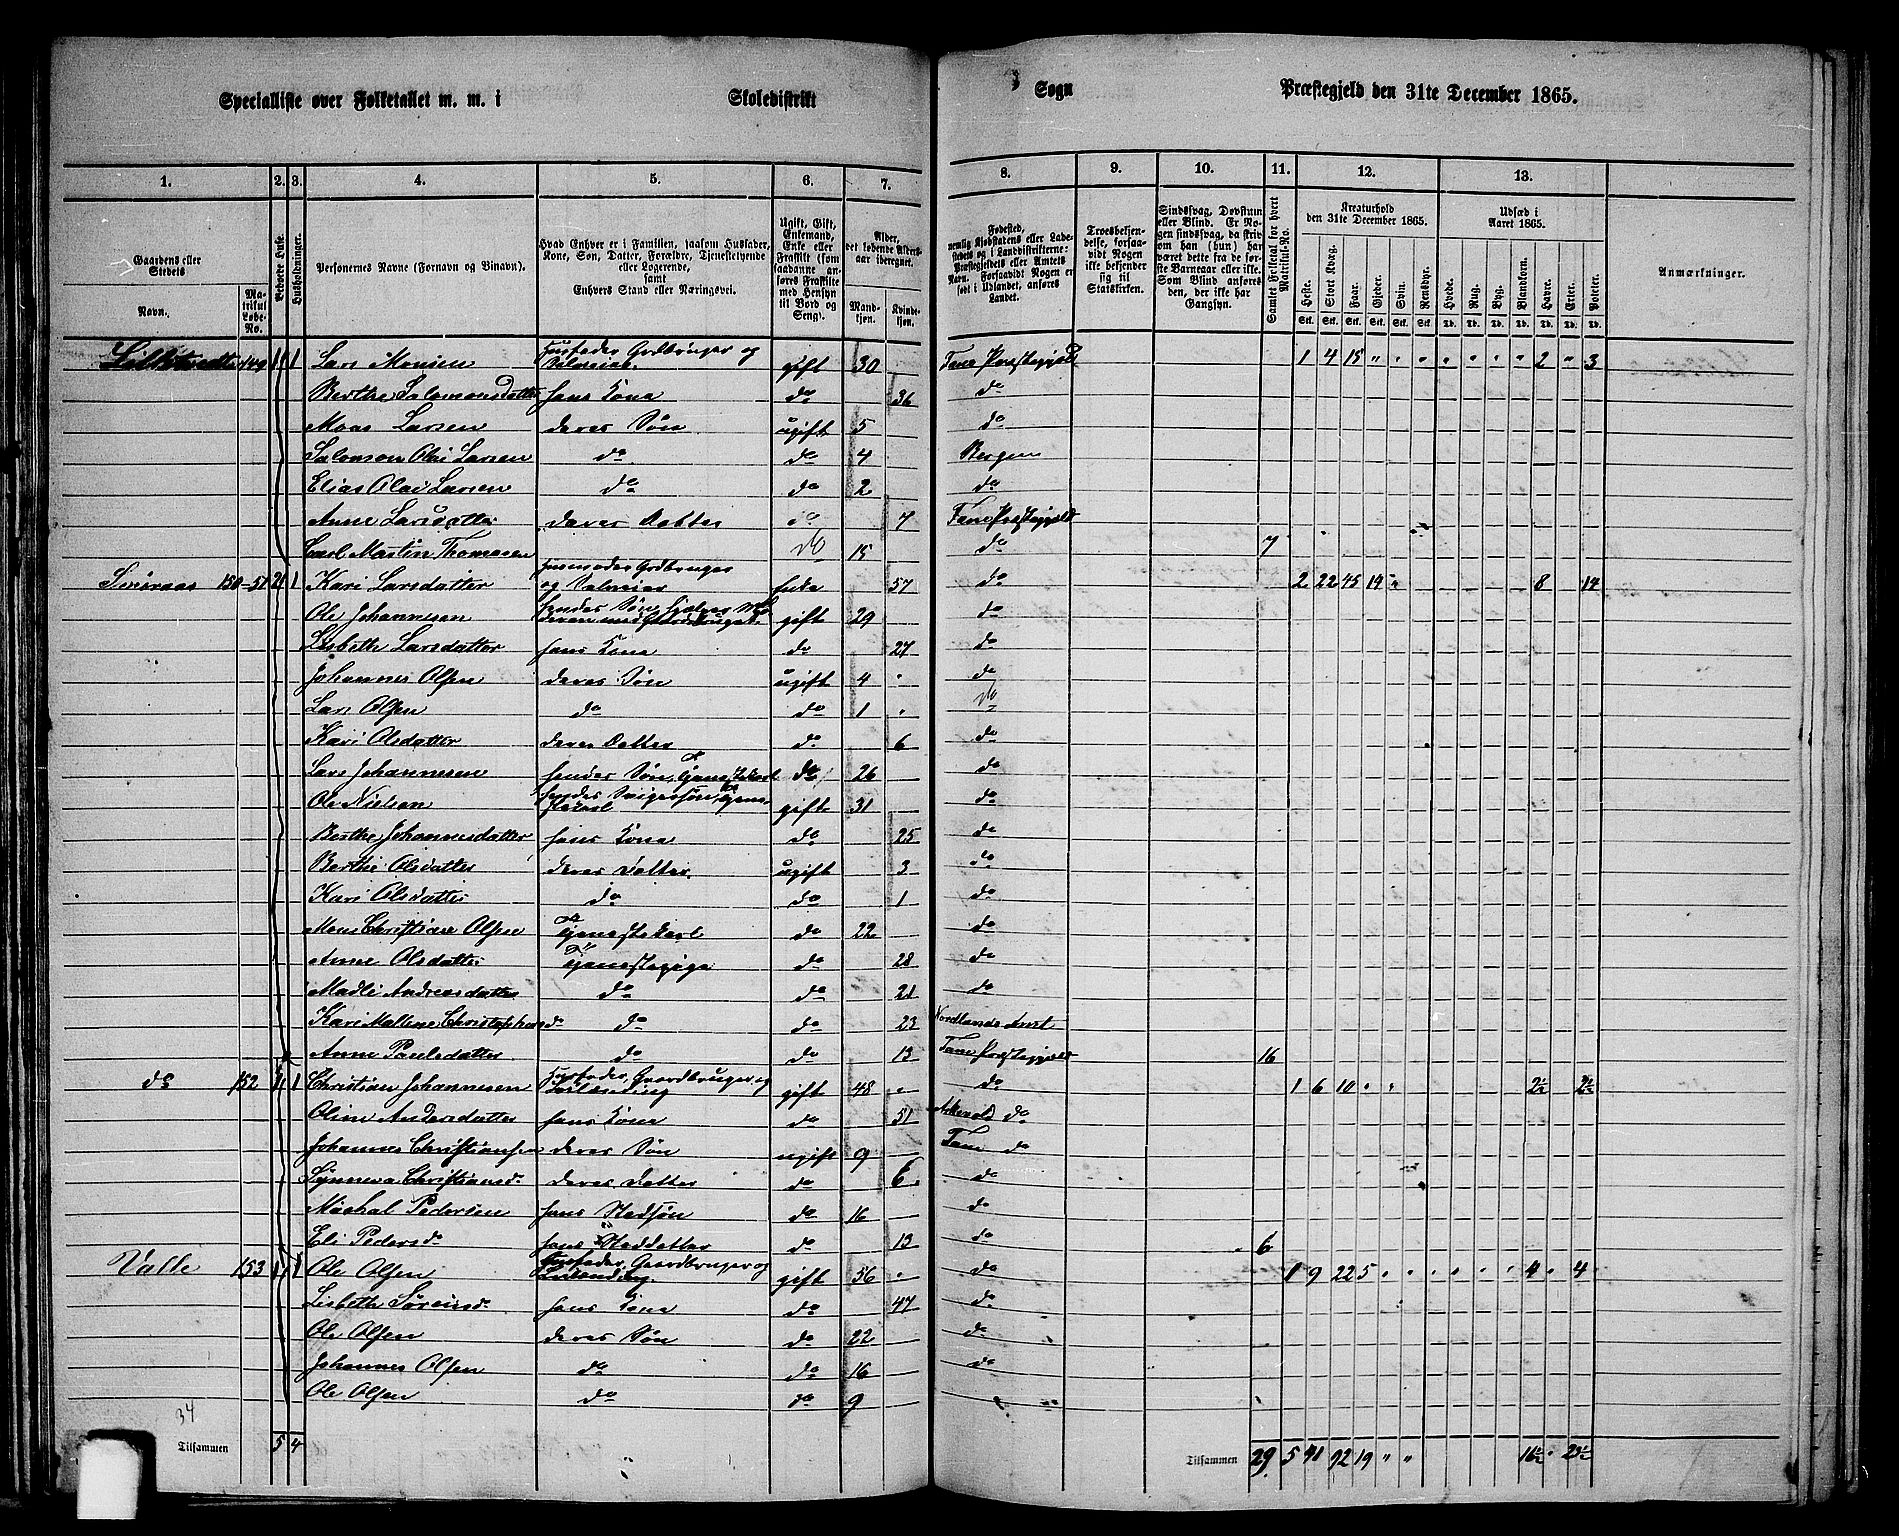 Specialliste over Folketallet m. m. i Skoledistrikt Sogn Præstegjeld den 31te December 1865.
1. 2. 3. 4. 5. 6. 7. 8. 9. 10. 11. 12. 13.
Gaardens eller Stedets
Navn.
Matrikul Løbe-No.
Bebœde Huse.
Husholdninger.
Personernes Navne (Fornavn og Vinavn).
Hvad Enhver er i Familien, saasom Husfader, Kone, Søn, Datter, Forældre, Tjenestetyende eller Logerende, samt Enhvers Stand eller Næringsvei.
Ugift, Gift, Enkemand, Enke eller Fraskilt (som saadanne anføres Fraskilte med Hensyn til Bord og Seng).
Alder, det løbende Aldersaar iberegnet.
Mandkjøn. Kvindekjøn.
Fødested, nemlig Kjøbstadens eller Ladestedets og i Landdistrikterne: Præstegjeldets eller Amtets Navn. Forsaavidt Nogen er født i Udlandet, anføres Landet.
Troesbekjendelse, forsaavidt Nogen ikke bekjender sig til Statskirken.
Sindssvag, Døvstum eller Blind. Er Nogen sindssvag, da skrives om han (hun) har været dette fra de første Barneaar eller ikke. Som Blind anføres den, der ikke har Gangsyn.
Samlet Folketal for hvert Matrikul-No.
Kreaturhold den 31te December 1865.
Heste. Stort Kvæg. Faar. Gjeder. Svin. Rensdyr.
Udsæd i Aaret 1865.
Hvede. Rug. Byg. Blandkorn. Havre. Erter. Poteter.
Anmærkninger.
149 1 1 Lars Monsen Husfader Grdbruger og gift 30 Fane Præstegjeld 1 4 15 " 2 " 3
Berthe Salomonsdatter hans Kone do 36 do
Mons Larsen deres Søn ugift 5 do
Salomon Olai Larsen do do 4 Bergen
Elias Olai Larsen do do 2 do
Anne Larsdatter deres Datter do 7 Fane Præstegjeld
Carl Martin Thomesen do 15 do 7
150-51 2 1 Kari Larsdatter Enke 57 do 2 22 45 19 8 14
Ole Johannesen hendes Søn, hjælper Moderen med Gaardbruget gift 29 do
Lisbeth Larsdatter hans Kone do 27 do
Johannes Olsen deres Søn ugift 4 do
Lars Olsen do do 1 do
Kari Olsdatter deres Datter do 6 do
Lars Johannesen hendes Søn, Tjenestekarl do 26 do
Ole Nielsen hendes Svigersøn, Tjenestekarl gift 31 do
Berthe Johannesdatter hans Kone do 25 do
Berthe Olsdatter deres Datter ugift 3 do
Kari Olsdatter do do 1 do
Mons Christian Olsen Tjenestekarl do 22 do
Anne Olsdatter Tjenestepige do 28 do
Madli Andreasdatter do do 21 do
Kari Mallene Christophersd. do do 23 Nordlands Amt
Anne Paulsdatter do do 13 Fane Præstegjeld 16
do 152 1 1 Christian Johannesen Husfader, Gaardbruger og gift 48 do 1 6 10 " " 2½ 2½
Oline Andersdatter hans Kone do 51 do
Johannes Christiansen deres Søn ugift 9 Fane do
Synneva Christiansd. deres Datter do 6 do
Michal Pedersen hans Stedsøn do 16 do
Eli Pedersd. hans Steddatter do 13 do 6
Valle 153 1 1 Ole Olsen Husfader, Gaardbruger og gift 56 do 1 9 22 5 4 4
Lisbeth Sørensd. hans Kone do 47 do
Ole Olsen deres Søn do 22 do
Johannes Olsen do do 16 do
Ole Olsen do do 9
34
Tilsammen 5 4 Tilsammen 29 5 41 92 19 " " 16½ 23½